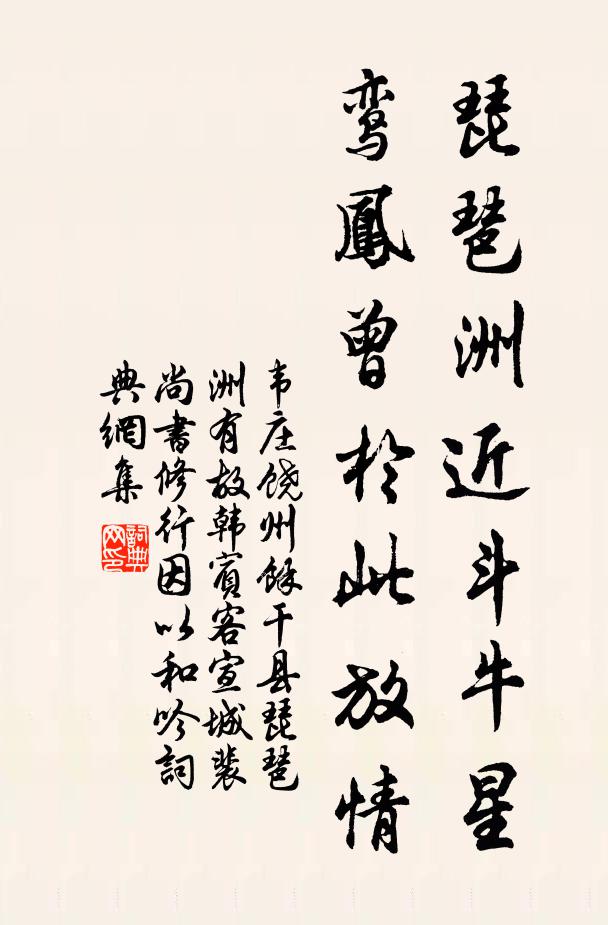 琵琶洲近斗牛星
鸾鳳曾於此放情
韦庄饶州餘干县琵琶
洲有故韩賓客宣城裴
尚書修行因以和吟詞
典網集
詞典网印